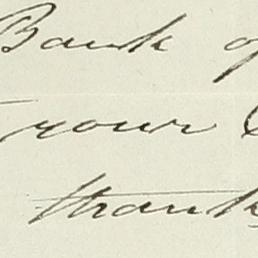 Bank of
your
thank